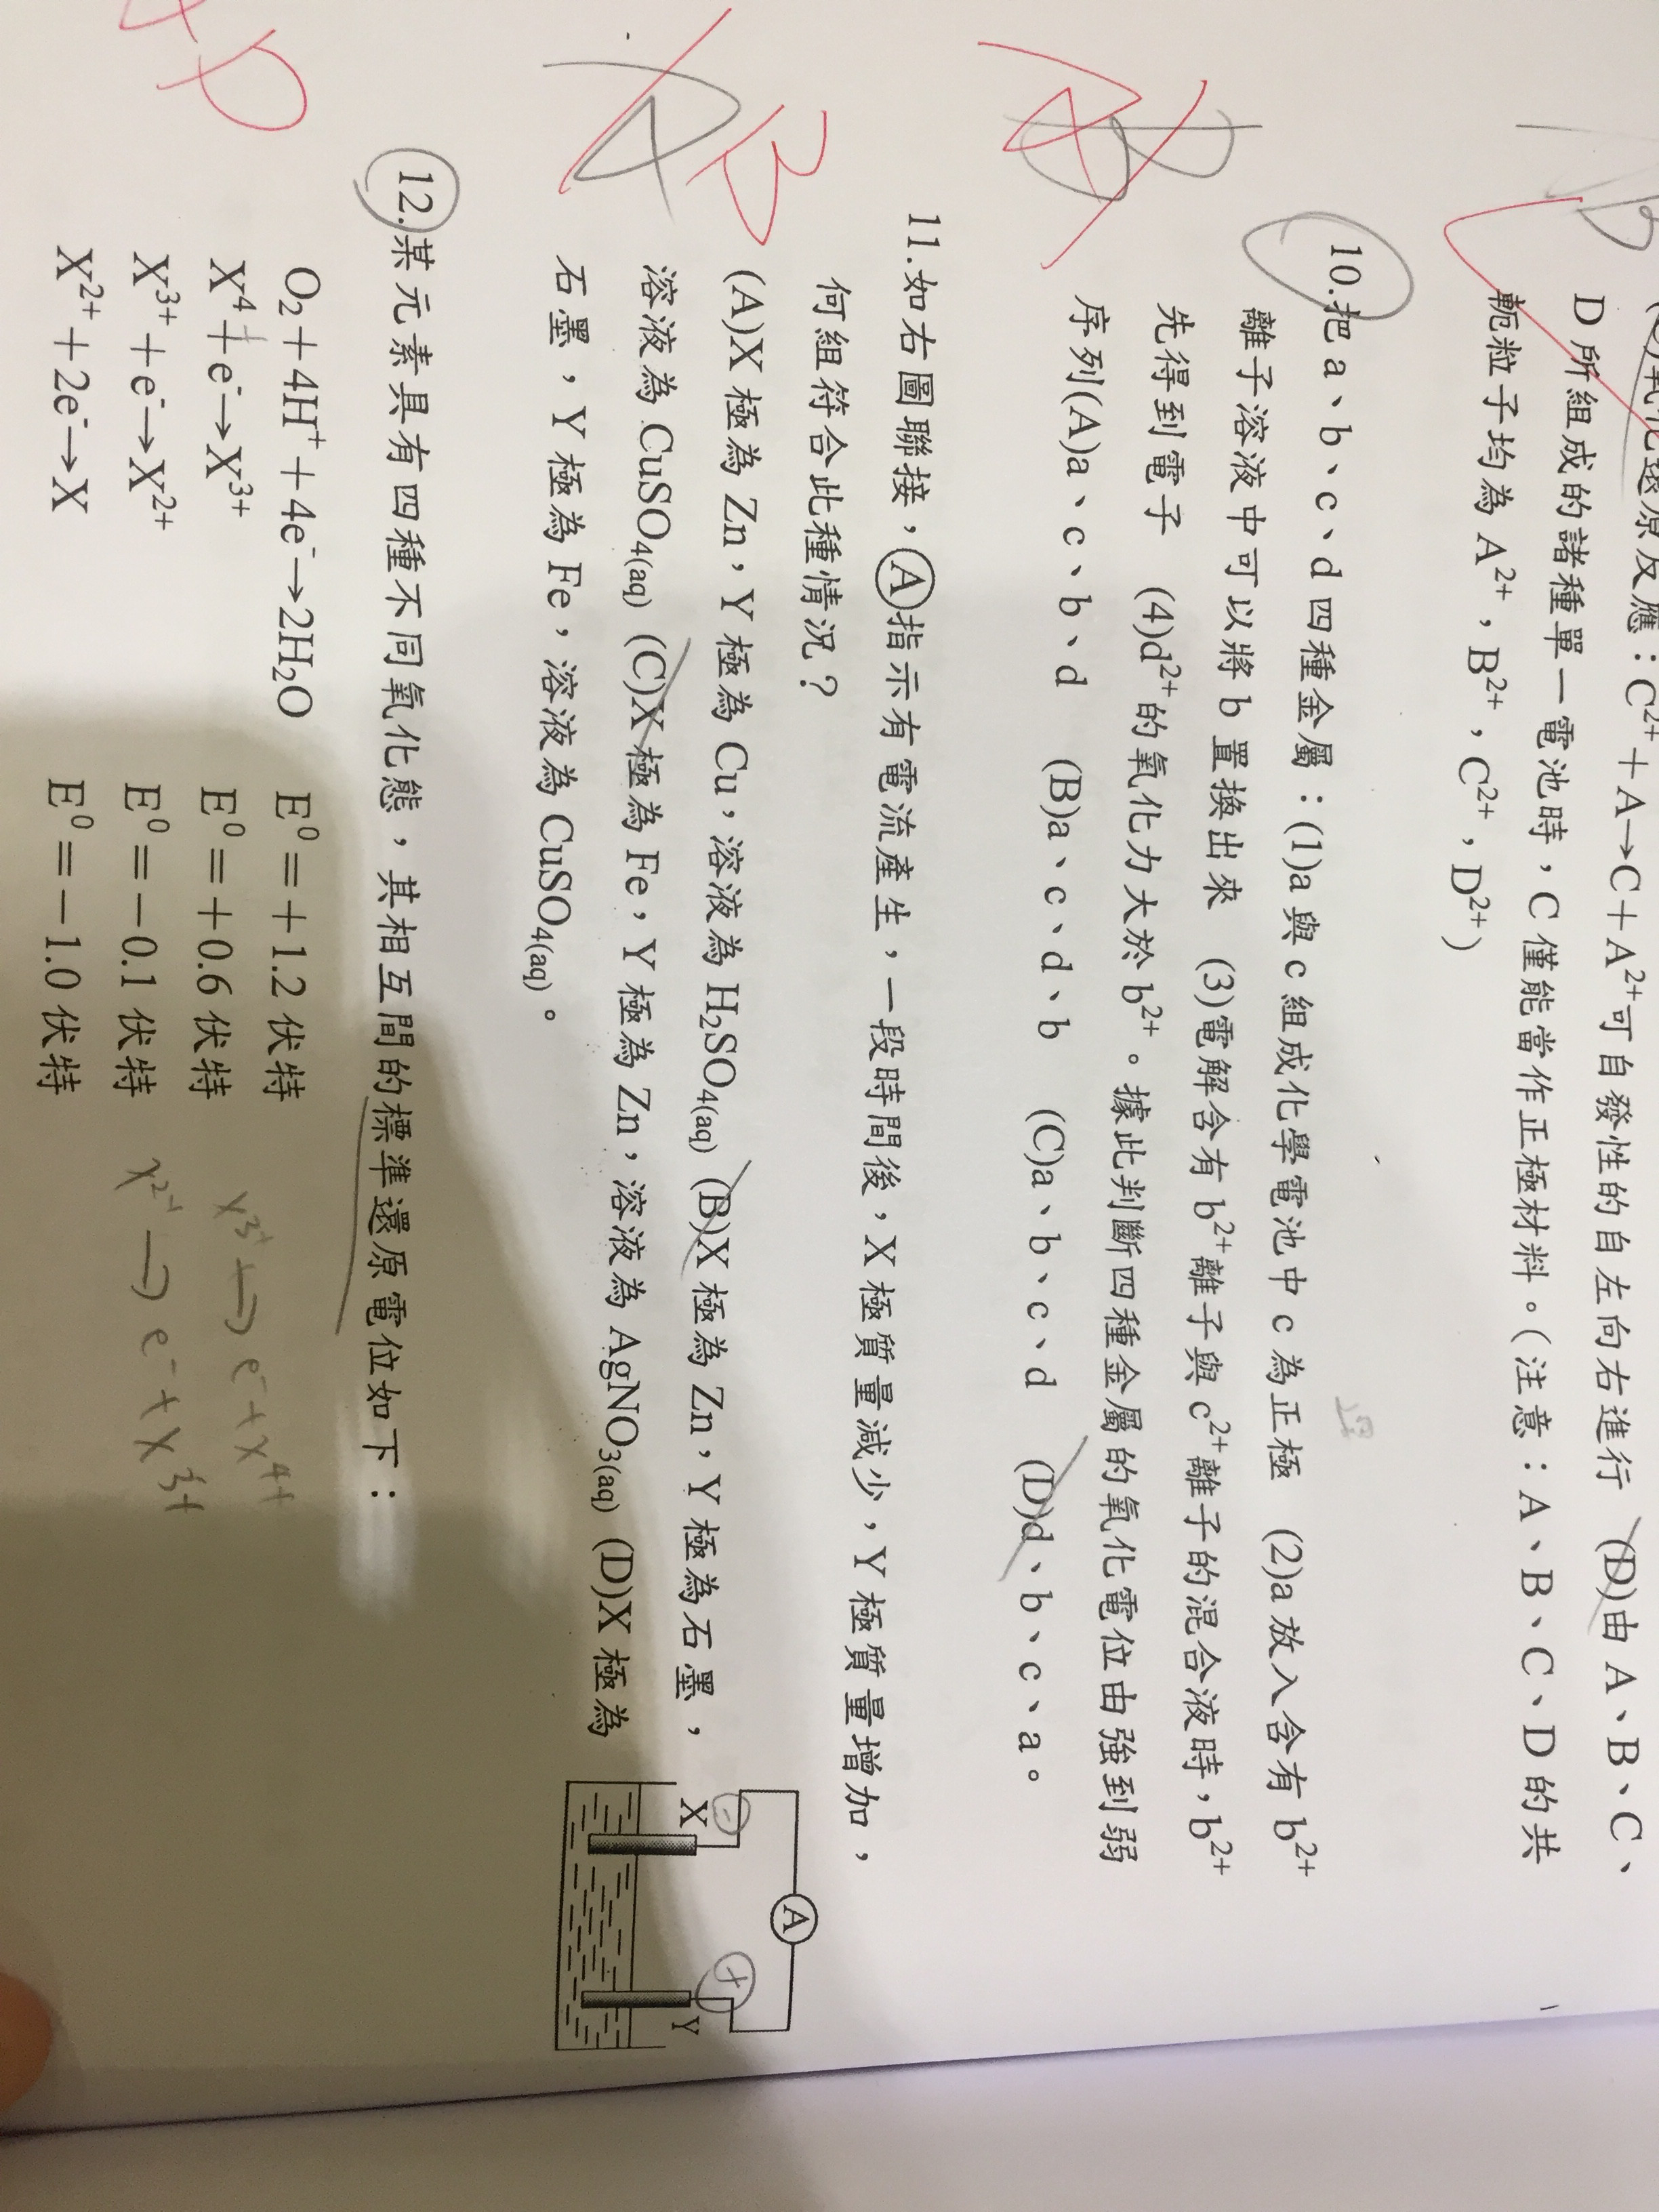 氧化還原反應：C²⁺＋A→C＋A²⁺可自發性的自左向右進行 (D)由 A、B、C、
D 所組成的諸種單一電池時，C 僅能當作正極材料。(注意：A、B、C、D 的共
軛粒子均為 A²⁺，B²⁺，C²⁺，D²⁺)
10.把 a、b、c、d 四種金屬：(1)a 與 c 組成化學電池中 c 為正極 (2)a 放入含有 b²⁺
離子溶液中可以將 b 置換出來 (3)電解含有 b²⁺離子與 c²⁺離子的混合液時，b²⁺
先得到電子 (4)d²⁺的氧化力大於 b²⁺。據此判斷四種金屬的氧化電位由強到弱
序列(A)a、c、b、d (B)a、c、d、b (C)a、b、c、d (D)d、b、c、a。
A
11.如右圖聯接，Ⓐ指示有電流產生，一段時間後，X 極質量減少，Y 極質量增加，
何組符合此種情況？
(A)X 極為 Zn，Y 極為 Cu，溶液為 H₂SO₄(aq) (B)X 極為 Zn，Y 極為石墨，
溶液為 CuSO₄(aq) (C)X 極為 Fe，Y 極為 Zn，溶液為 AgNO₃(aq) (D)X 極為
石墨，Y 極為 Fe，溶液為 CuSO₄(aq)。
B
A
X
Y
－
＋
12.某元素具有四種不同氧化態，其相互間的標準還原電位如下：
O₂＋4H⁺＋4e⁻→2H₂O E⁰＝＋1.2 伏特
X⁴⁺＋e⁻→X³⁺ E⁰＝＋0.6 伏特 X³⁺→e⁻+X⁴⁺
X³⁺＋e⁻→X²⁺ E⁰＝－0.1 伏特 X²⁺→e⁻+X³⁺
X²⁺＋2e⁻→X E⁰＝－1.0 伏特
D